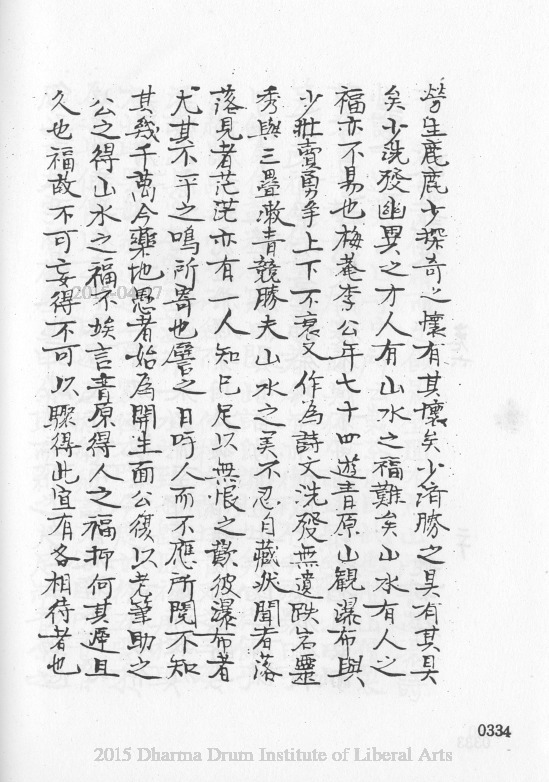 勞生鹿鹿少探奇之懷有其懷矣少濟勝之具有其具
矣少洗發幽異之才人有山水之福難矣山水有人之
福亦不易也梅菴李公年七十四遊青原山觀瀑布與
少壯賣勇爭上下不衰又作為詩文洗發無遺跌宕靈
秀與三疊漱青競勝夫山水之美不忍自藏狀聞者落
落見者茫茫亦有一人知己足以無恨之歎彼瀑布者
尤其不平之鳴所寄也譬之日吁人而不應所閱不知
其幾千萬今藥地愚者始為開生面公復以老筆助之
公之得山水之福不俟言青原得人之福抑何其遲且
久也福故不可妄得不可以驟得此宜有各相待者也
0334
2015 Dharma Drum Institute of Liberal Arts